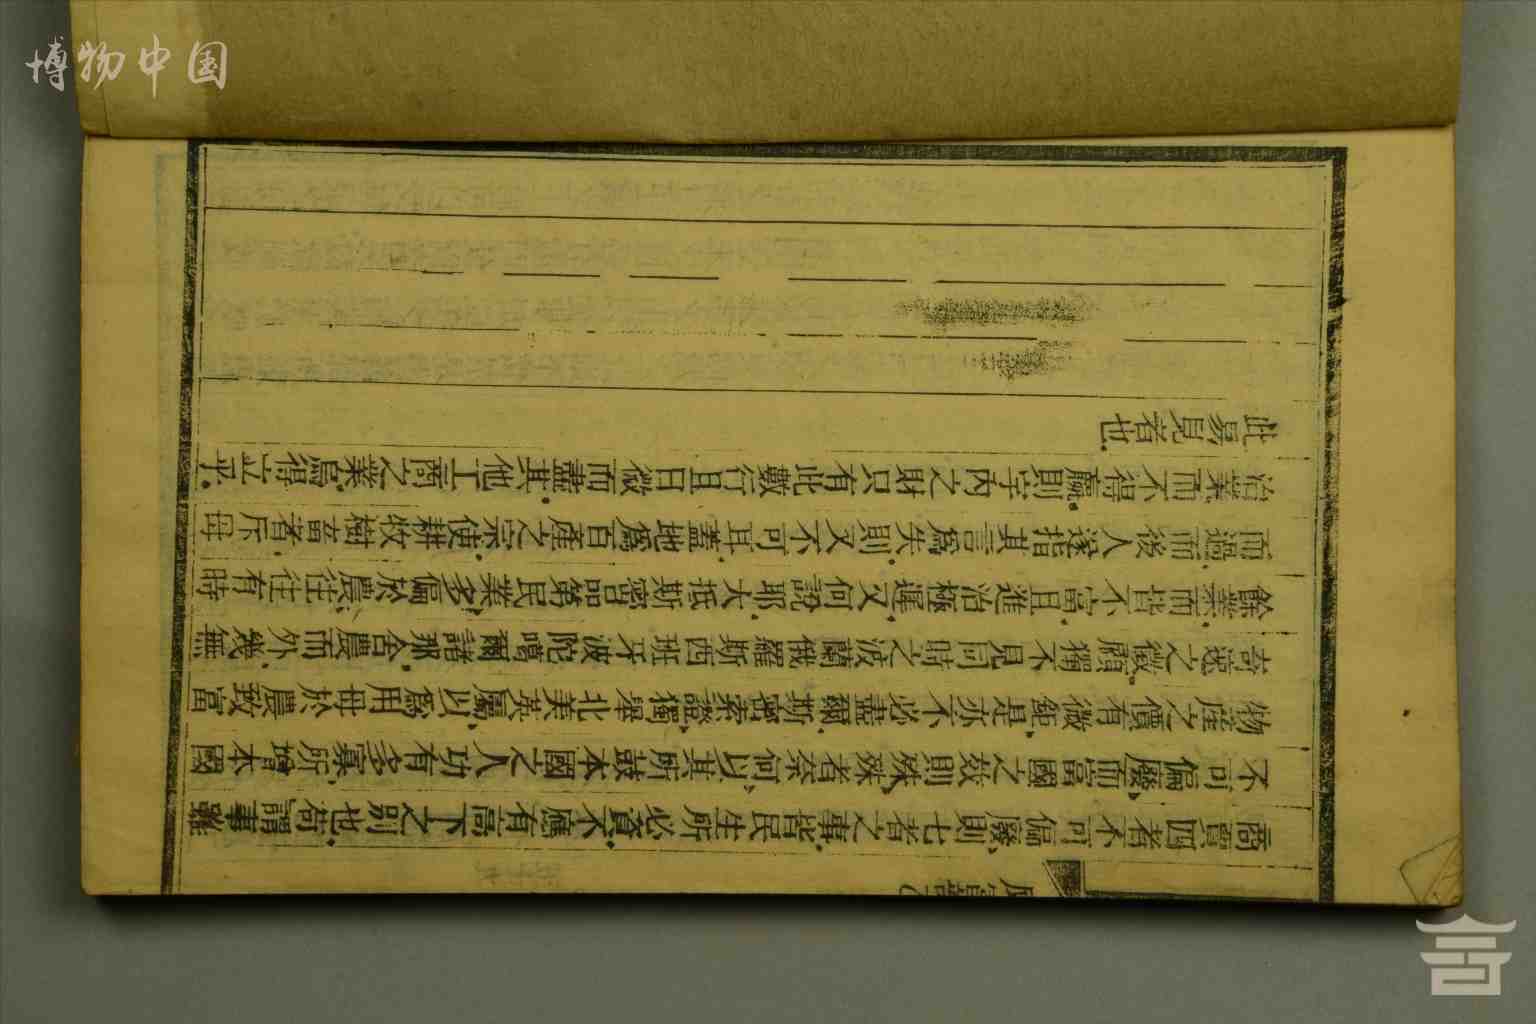 博物中国
商賈四者不可偏廢則七者之事皆民生所必資不應有高下之別也苟謂事雖
不可偏廢而富國之效則殊殊者奈何以其所鼓本國之人功有多寡所增本國
物產之價有微鉅是亦不必盡爾斯密案證獨舉北美英屬以爲用母於農致富
奇速之徵顧獨不見同時之波蘭俄羅斯西班牙波陀噶爾諸那舍農而外幾無
餘業而皆不富且進治極遲又何說耶大抵斯密品第民業多偏於農往往有時
而過而後人遂指其言爲失則又不可耳蓋地爲百產之宗使耕牧樹畜者斥母
治業而不得贏則宇內之財只有此數行且日微而盡其他工商之業烏得立乎
此易見者也